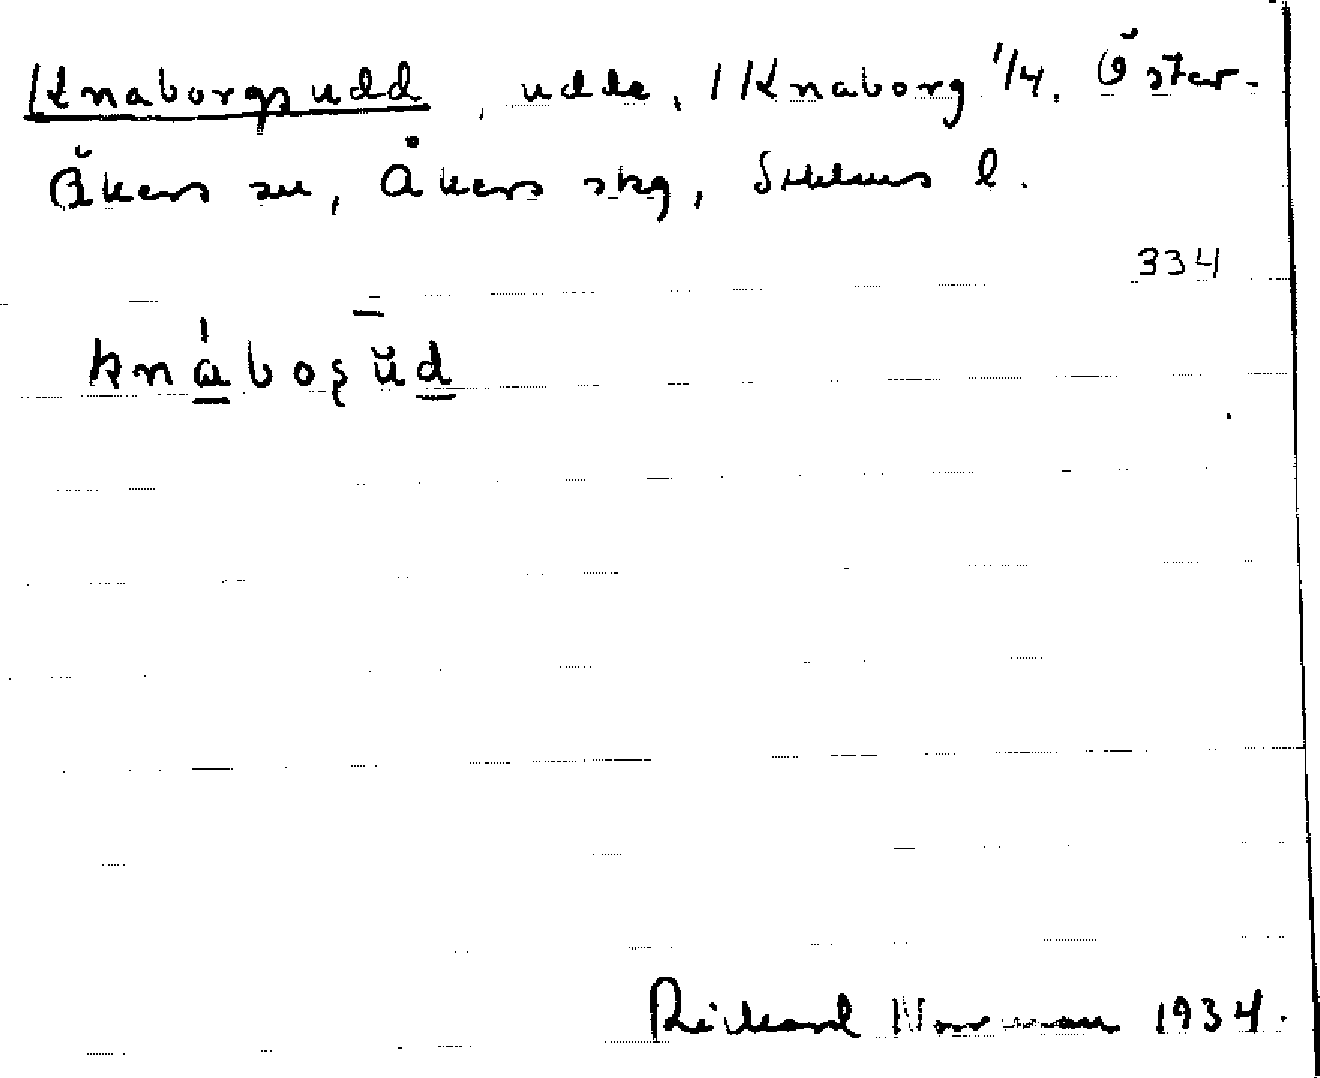 Knaborgsudd, udde, 1 Knaborg 1/4. Öster-
Åkers sn, Åkers skg, Sthlms l.
334
knaboşŭd
Rickard Norrman 1934.